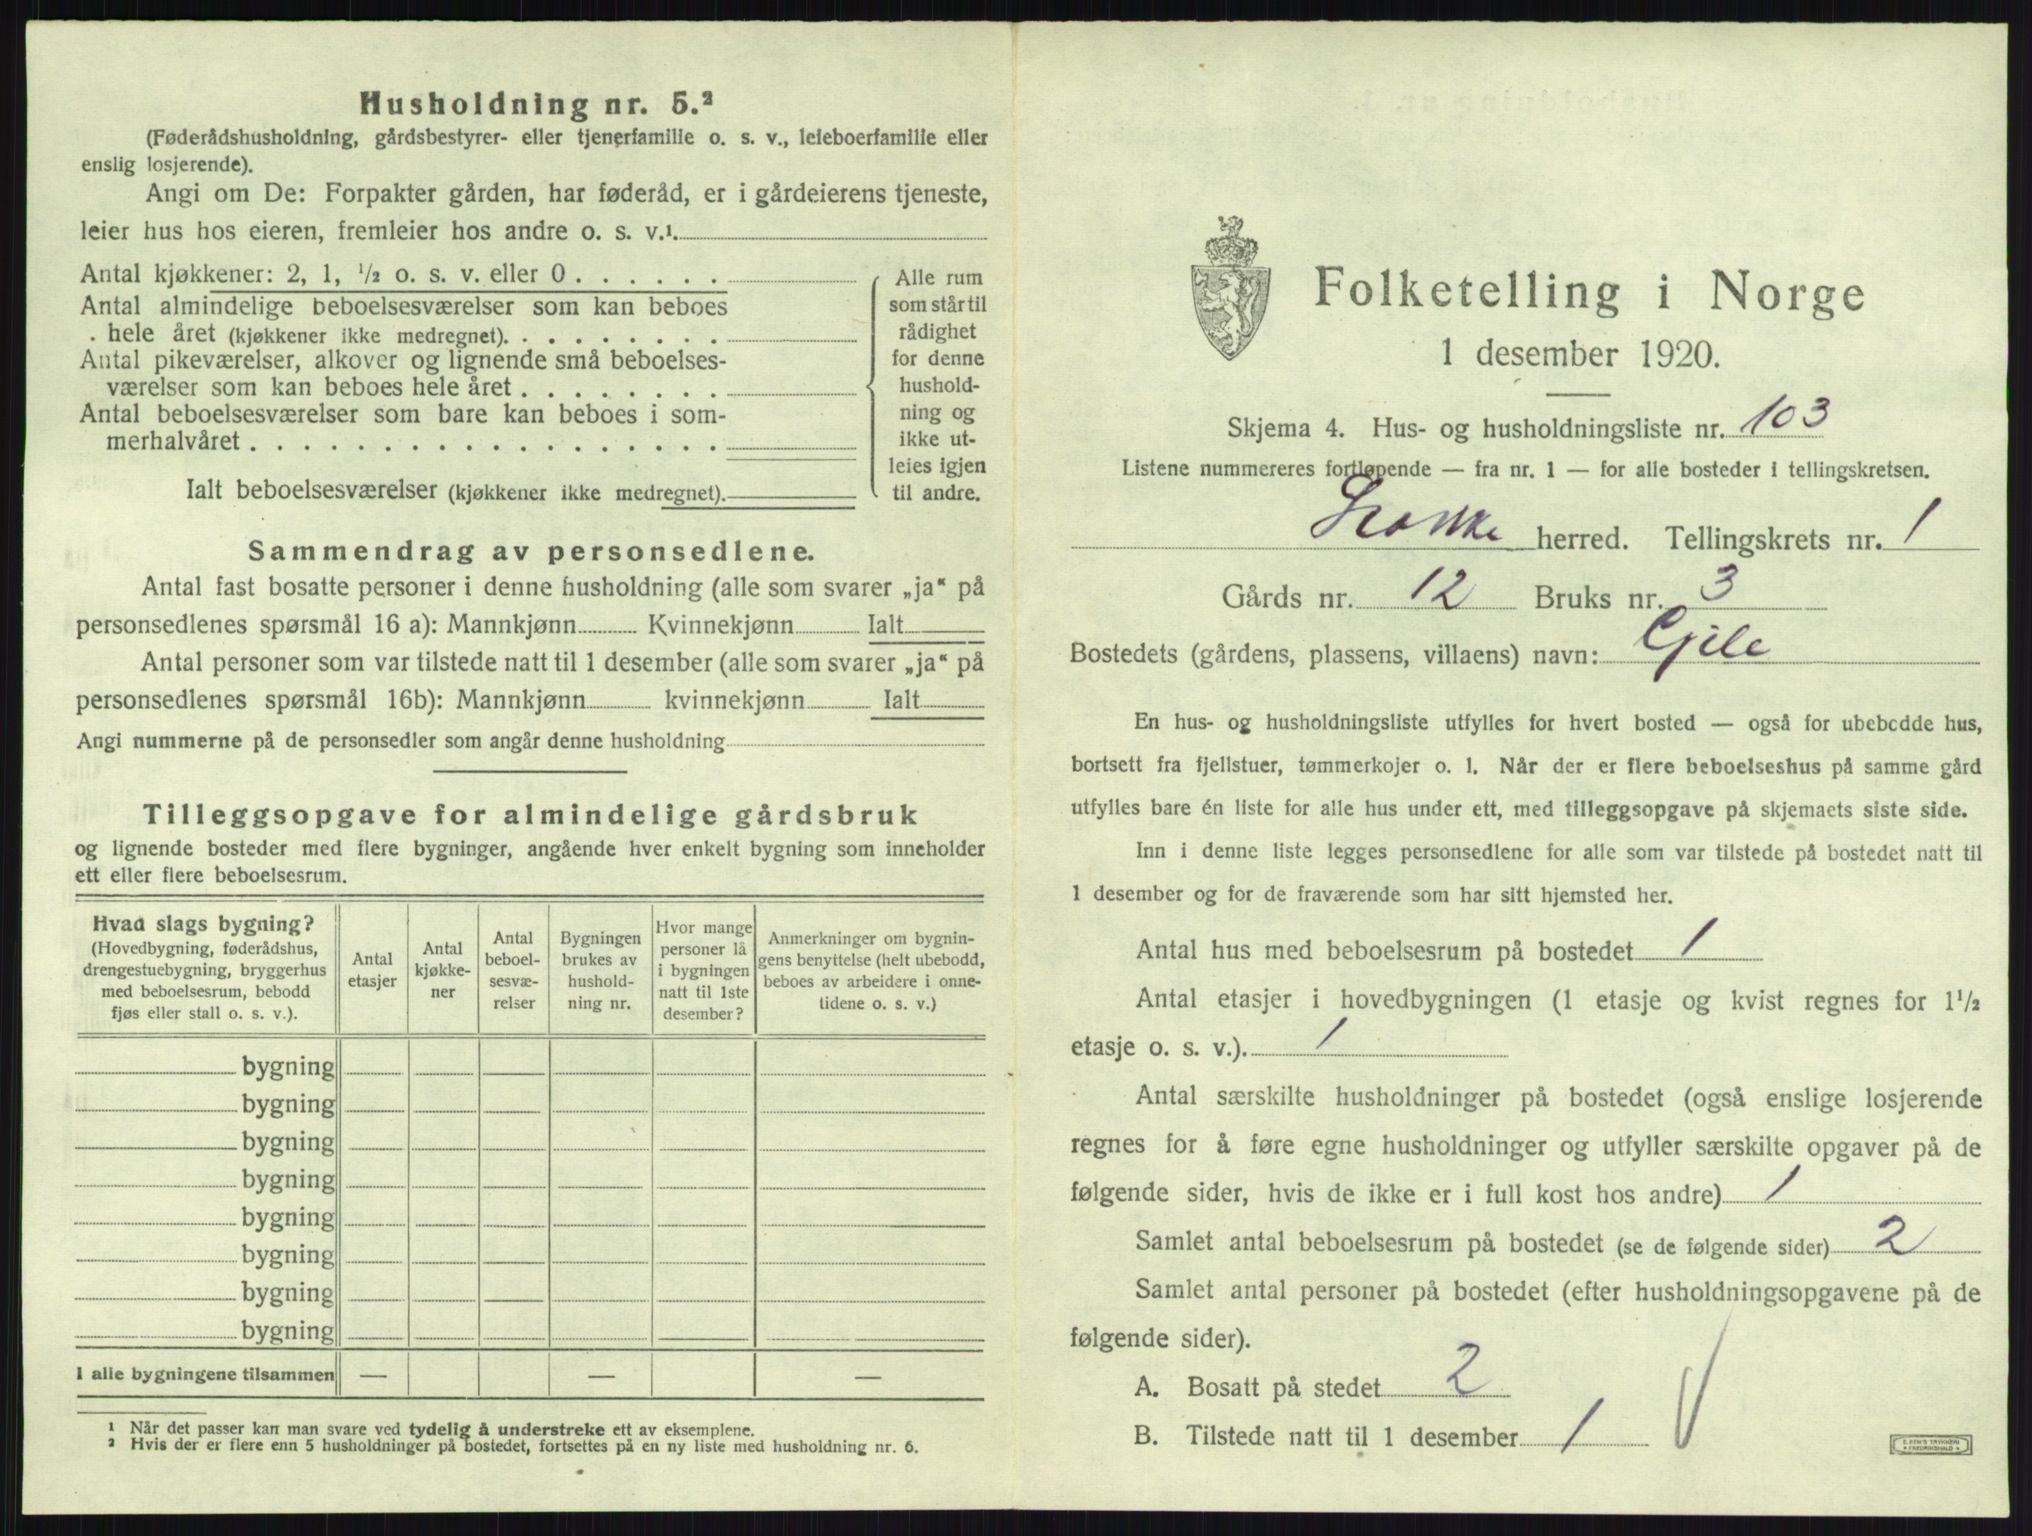 Husholdning nr. 5.²
(Føderådshusholdning, gårdsbestyrer- eller tjenerfamilie o. s. v., leieboerfamilie eller
enslig losjerende).
Angi om De: Forpakter gården, har føderåd, er i gårdeierens tjeneste,
leier hus hos eieren, fremleier hos andre o. s. v.¹
Antal kjøkkener: 2, 1, ½ o. s. v. eller 0 . . . . . .
Antal almindelige beboelsesværelser som kan beboes
hele året (kjøkkener ikke medregnet). . . . . . . . .
Antal pikeværelser, alkover og lignende små beboelses-
værelser som kan beboes hele året . . . . . . . .
Antal beboelsesværelser som bare kan beboes i som-
merhalvåret . . . . . . . . . . . . . . . . . .
Ialt beboelsesværelser (kjøkkener ikke medregnet).
Alle rum
som står til
rådighet
for denne
hushold-
ning og
ikke ut-
leies igjen
til andre.
Sammendrag av personsedlene.
Antal fast bosatte personer i denne husholdning (alle som svarer „ja“ på
personsedlenes spørsmål 16 a): Mannkjønn Kvinnekjønn Ialt
Antal personer som var tilstede natt til 1 desember (alle som svarer „ja“ på
personsedlenes spørsmål 16b): Mannkjønn kvinnekjønn Ialt
Angi nummerne på de personsedler som angår denne husholdning
Tilleggsopgave for almindelige gårdsbruk
og lignende bosteder med flere bygninger, angående hver enkelt bygning som inneholder
ett eller flere beboelsesrum.
Hvad slags bygning?
(Hovedbygning, føderådshus,
drengestuebygning, bryggerhus
med beboelsesrum, bebodd
fjøs eller stall o. s. v.).
Antal
etasjer
Antal
kjøkke-
ner
Antal
beboel-
sesvæ-
relser
Bygningen
brukes av
hushold-
ning nr.
Hvor mange
personer lå
i bygningen
natt til 1ste
desember?
Anmerkninger om bygnin-
gens benyttelse (helt ubebodd,
beboes av arbeidere i onne-
tidene o. s. v.)
bygning
bygning
bygning
bygning
bygning
bygning
bygning
bygning
I alle bygningene tilsammen — — —
¹ Når det passer kan man svare ved tydelig å understreke ett av eksemplene.
² Hvis der er flere enn 5 husholdninger på bostedet, fortsettes på en ny liste med husholdning nr. 6.
Folketelling i Norge
1 desember 1920.
Skjema 4. Hus- og husholdningsliste nr. 103
Listene nummereres fortløpende — fra nr. 1 — for alle bosteder i tellingskretsen.
herred. Tellingskrets nr. 1
Gårds nr. 12 Bruks nr. 3
Bostedets (gårdens, plassens, villaens) navn: Gjile
En hus- og husholdningsliste utfylles for hvert bosted — også for ubebodde hus,
bortsett fra fjellstuer, tømmerkojer o. l. Når der er flere beboelseshus på samme gård
utfylles bare én liste for alle hus under ett, med tilleggsopgave på skjemaets siste side.
Inn i denne liste legges personsedlene for alle som var tilstede på bostedet natt til
1 desember og for de fraværende som har sitt hjemsted her.
Antal hus med beboelsesrum på bostedet 1
Antal etasjer i hovedbygningen (1 etasje og kvist regnes for 1½
etasje o. s. v.). 1
Antal særskilte husholdninger på bostedet (også enslige losjerende
regnes for å føre egne husholdninger og utfyller særskilte opgaver på de
følgende sider, hvis de ikke er i full kost hos andre) 1
Samlet antal beboelsesrum på bostedet (se de følgende sider) 2
Samlet antal personer på bostedet (efter husholdningsopgavene på de
følgende sider).
A. Bosatt på stedet 2
B. Tilstede natt til 1 desember 1